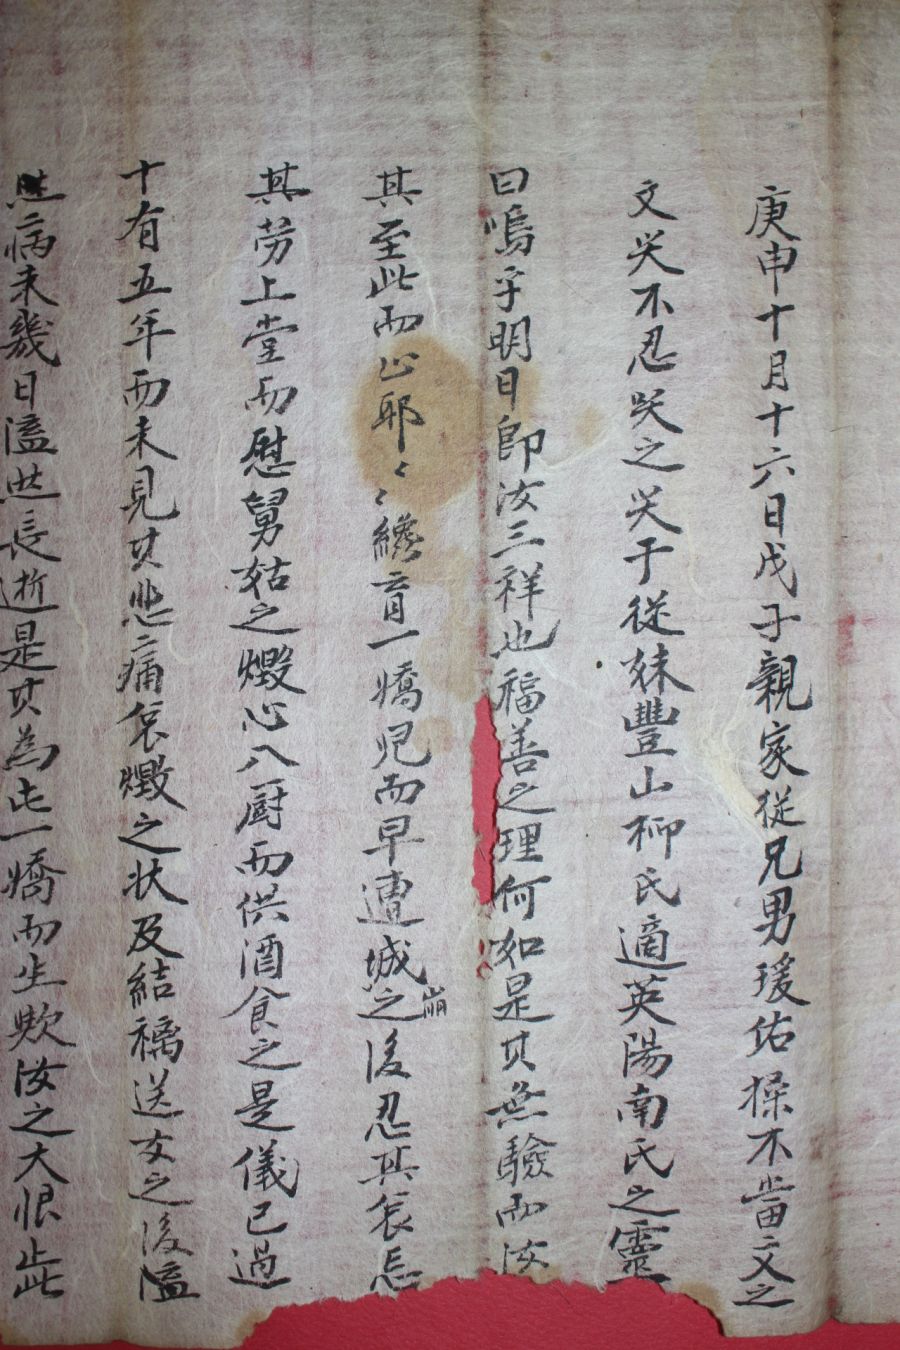 庚申十月十六日戊子親家從兄男瑗佑操不當文之
文哭不忍哭之哭于從妹豐山柳氏適英陽南氏之靈
曰嗚乎明日卽汝三祥也福善之理何如是其無驗而汝
其至此而止耶〻〻纔育一嬌児而早遭城之崩後忍其哀忘
其勞上堂而慰舅姑之燬心入厨而供酒食之是儀已過
十有五年而未見其悲痛哀燬之状及結褵送女之後溘
病未幾日溘然長逝是其為此一嬌而生歟汝之大恨止此